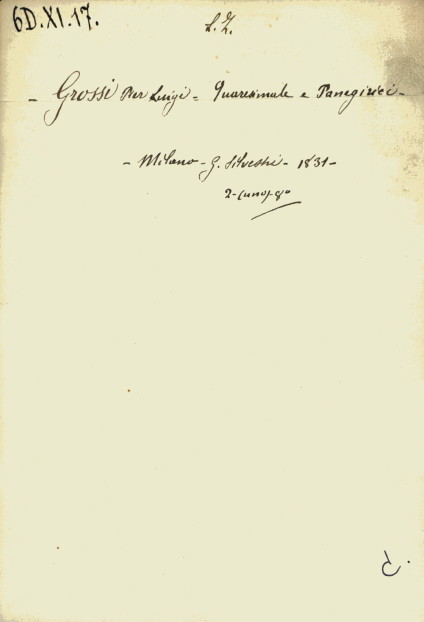 6D.XI.17.
L. Z.
- Grossi Pier Luigi - Quaresimale e Panegirici -
- Milano - G. Silvestri - 1831 -
2 - (uno) - 8°
C.